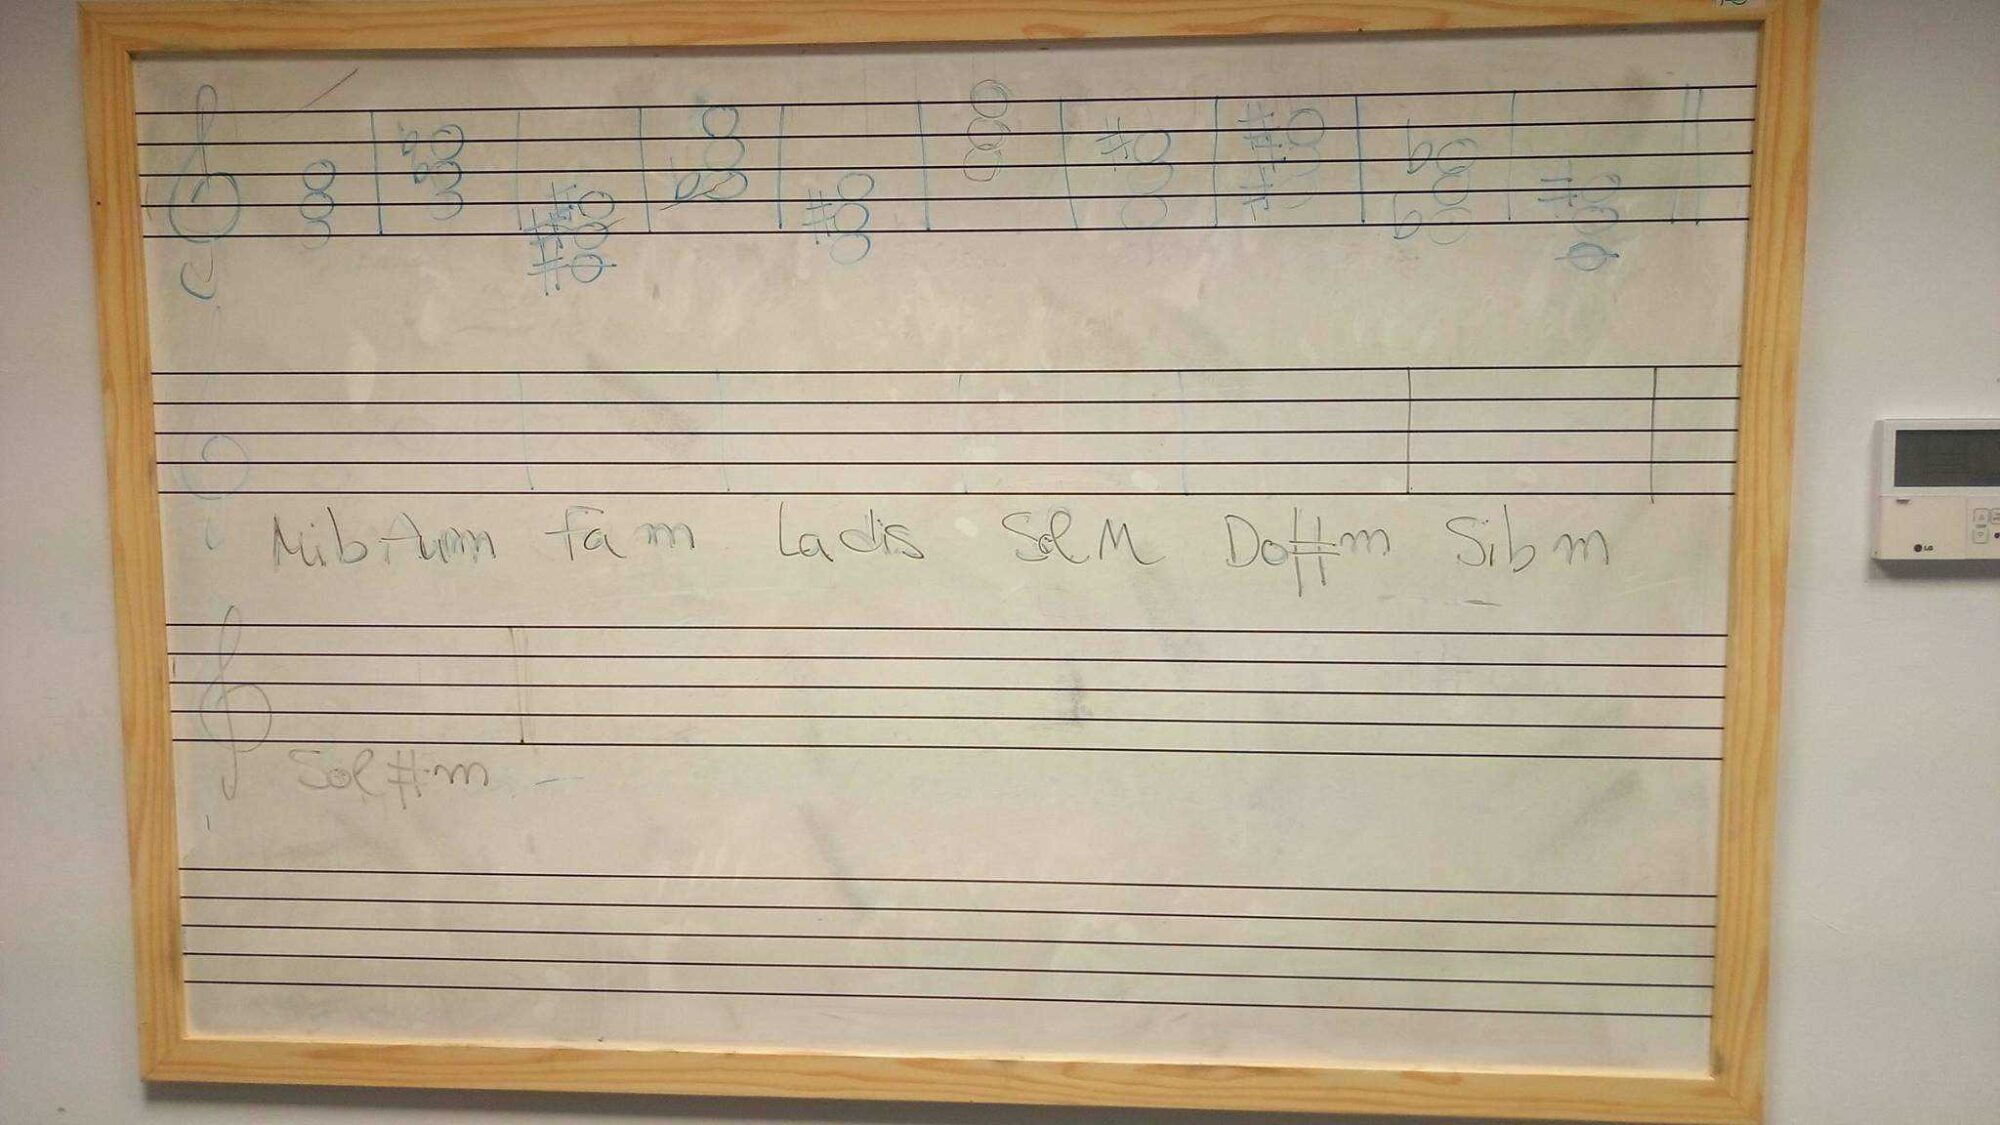 Mib Aum Fa m Ladis Sol M Do#m Sib m
Sol #m
LG